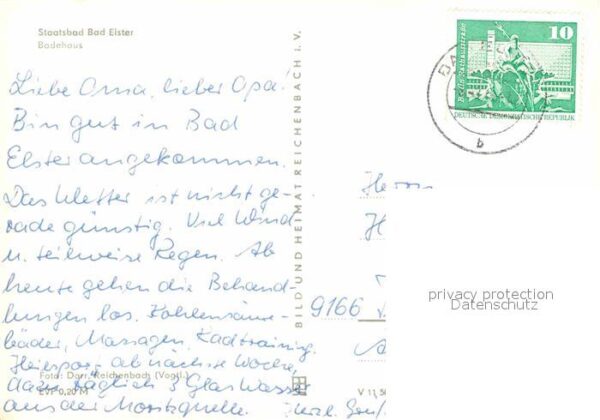 Staatsbad Bad Elster
Badehaus
Liebe Oma, lieber Opa!
Bin gut in Bad
Elster angekommen.
Das Wetter ist nicht ge-
rade günstig. Viel Wind
u. teilweise Regen. Ab
heute gehen die Behand-
lungen los. Kohlensäure-
bäder, Massagen, Radtraining.
ab nächste Woche,
dazu täglich 3 Glas Wasser
aus der Moritzquelle. Herzl. Grüße
Foto: Darr, Reichenbach (Vogtl.)
EVP 0,20 M
BILD UND HEIMAT REICHENBACH I. V.
V 11,50
10
DEUTSCHE DEMOKRATISCHE REPUBLIK
b
Herrn
H
9166
privacy protection
Datenschutz